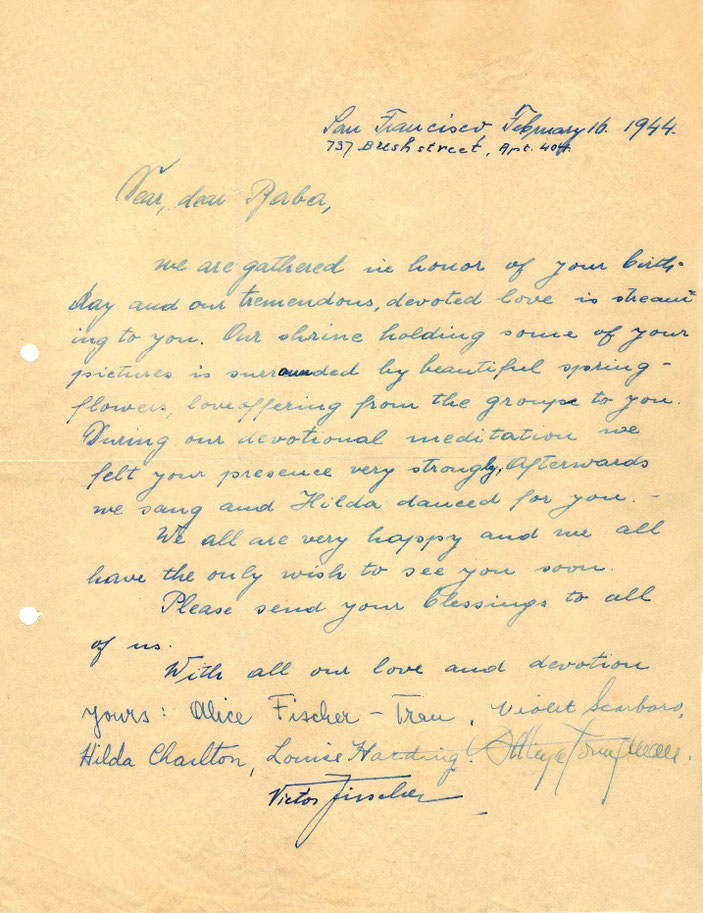 San Francisco, February 16. 1944.
737 Bush street, Apt. 404.
Dear, dear Baba,
we are gathered in honor of your birth-
day and our tremendous, devoted love is stream=
ing to you. Our shrine holding some of your
pictures is surrounded by beautiful spring-
flowers, loveoffering from the groupe to you.
During our devotional meditation we
felt your presence very strongly, Afterwards
we sang and Hilda danced for you. -
We all are very happy and we all
have the only wish to see you soon.
Please send your blessings to all
of us.
With all our love and devotion
yours: Alice Fischer-Trau, Violet Scarboro,
Hilda Charlton, Louise Harding.
Victor Fischer